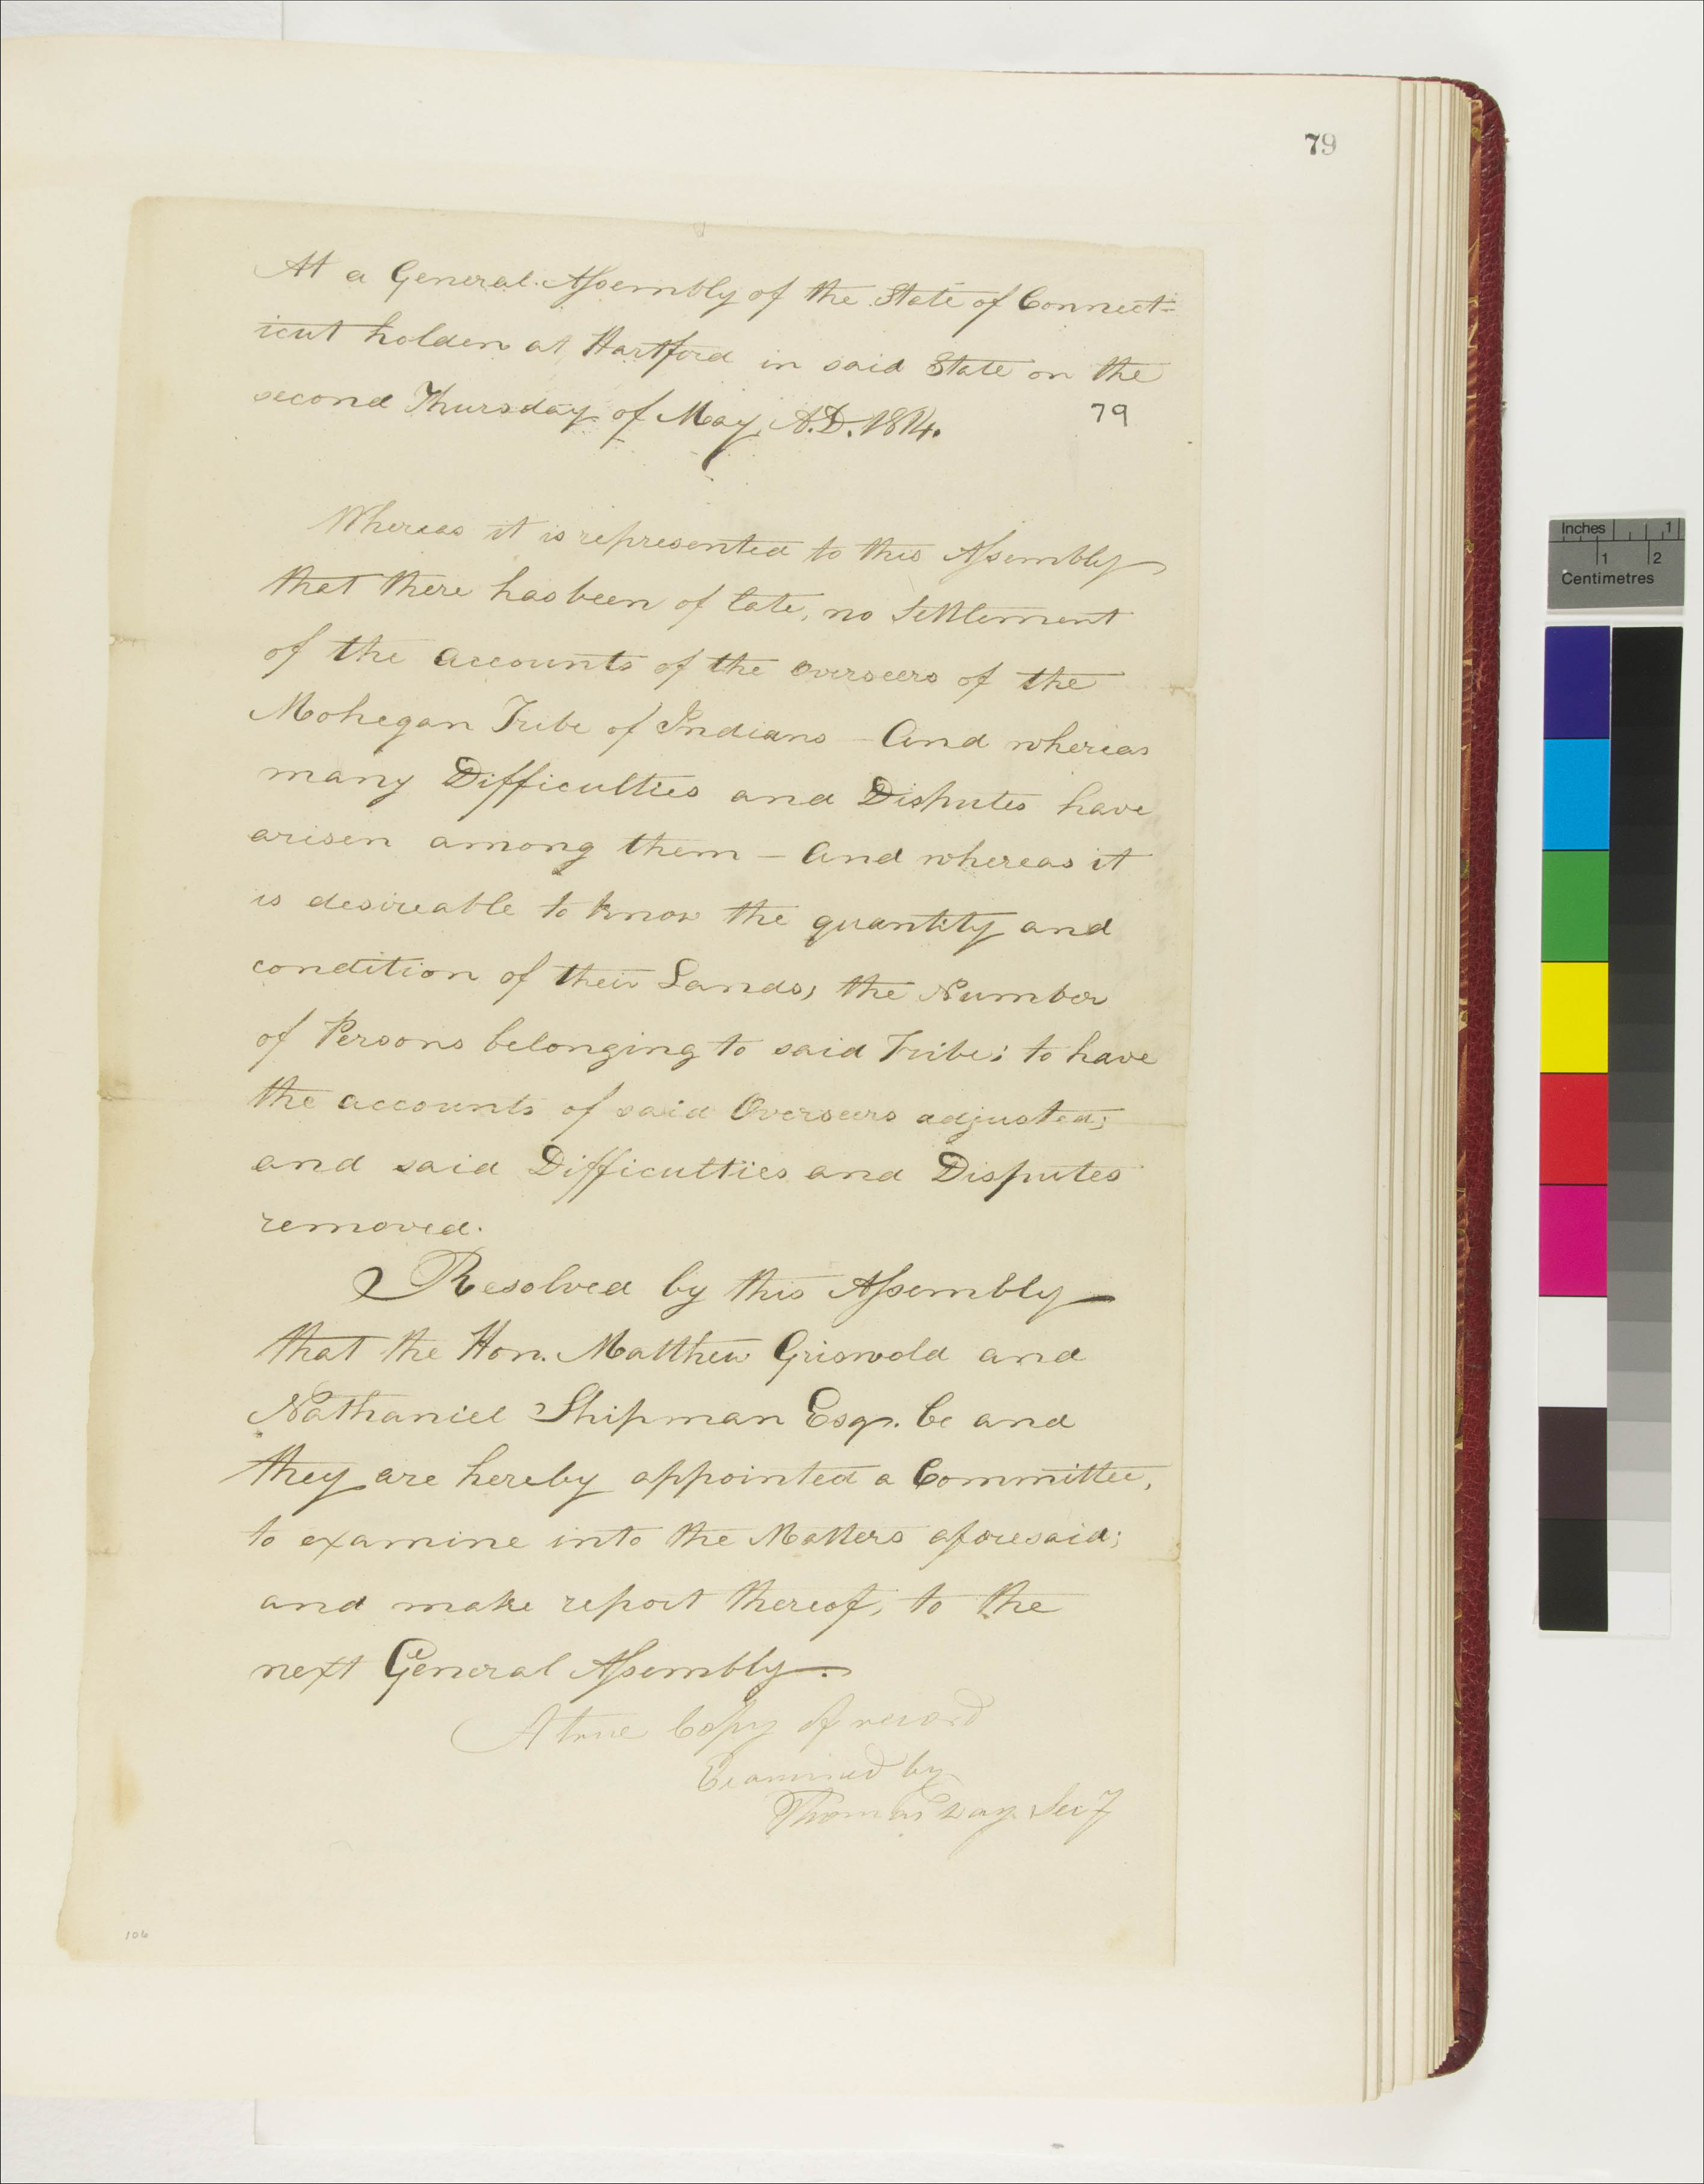 79
At a General Assembly of the State of Connect=
icut holden at Hartford in said State on the
second Thursday of May, A.D. 1814.
79
Whereas it is represented to this Assembly
that there has been of late, no Settlement
of the accounts of the overseers of the
Mohegan Tribe of Indians – And whereas
many Difficulties and Disputes have
arisen among them – And whereas it
is desireable to know the quantity and
condition of their Lands, the Number
of Persons belonging to said Tribe; to have
the accounts of said Overseers adjusted;
and said Difficulties and Disputes
removed.
Resolved by this Assembly
that the Hon. Matthew Griswold and
Nathaniel Shipman Esqr. be and
they are hereby appointed a Committee,
to examine into the Matters aforesaid;
and make report thereof, to the
next General Assembly.
A true Copy of record
Examined by
Thomas Day Secy
106
Inches 1
1 2
Centimetres